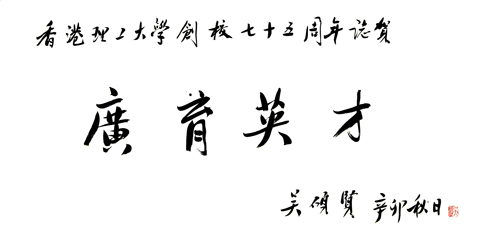 香港理工大學創校七十五周年誌賀
廣育英才
吳碩賢 辛卯秋日